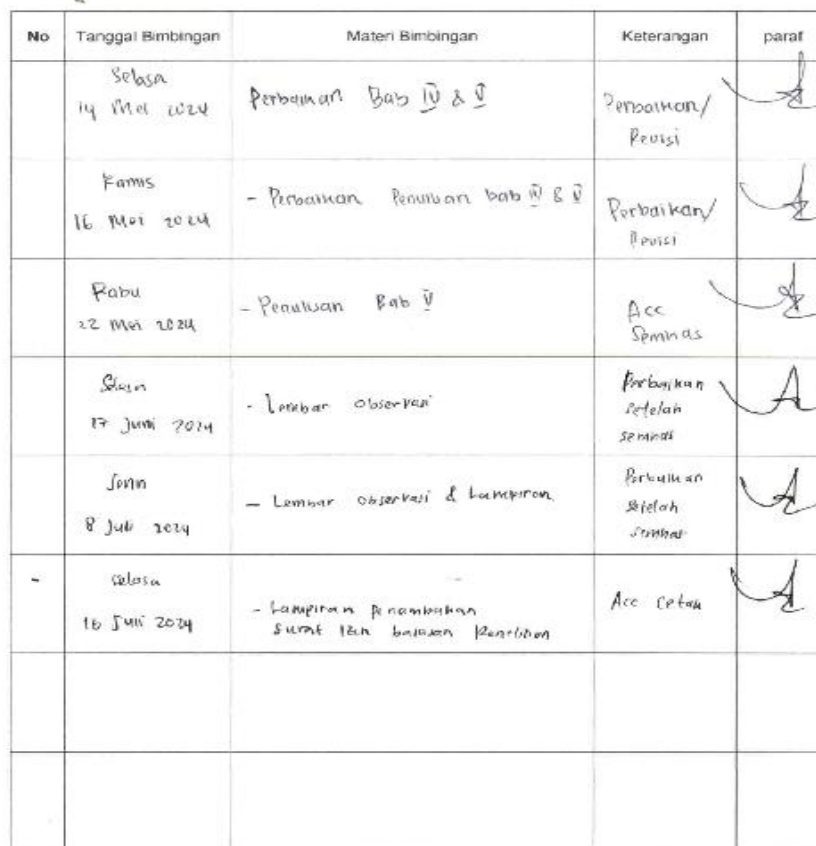 No Tanggal Bimbingan Materi Bimbingan Keterangan paraf
Selasa
14 Mei 2024
Perbaikan Bab IV & V
Perbaikan/
Revisi
Kamis
16 Mei 2024
- Perbaikan Penulisan bab IV & V
Perbaikan/
Revisi
Rabu
22 Mei 2024
- Penulisan Bab V
Acc
Semhas
Selasa
Juni 2024
- Lembar observasi
Perbaikan
setelah
semhas
Senin
8 Juli 2024
- Lembar observasi & Lampiran
Perbaikan
setelah
semhas
-
Selasa
16 Juli 2024
- Lampiran Penambahan
Surat Izin balasan Penelitian
Acc Cetak